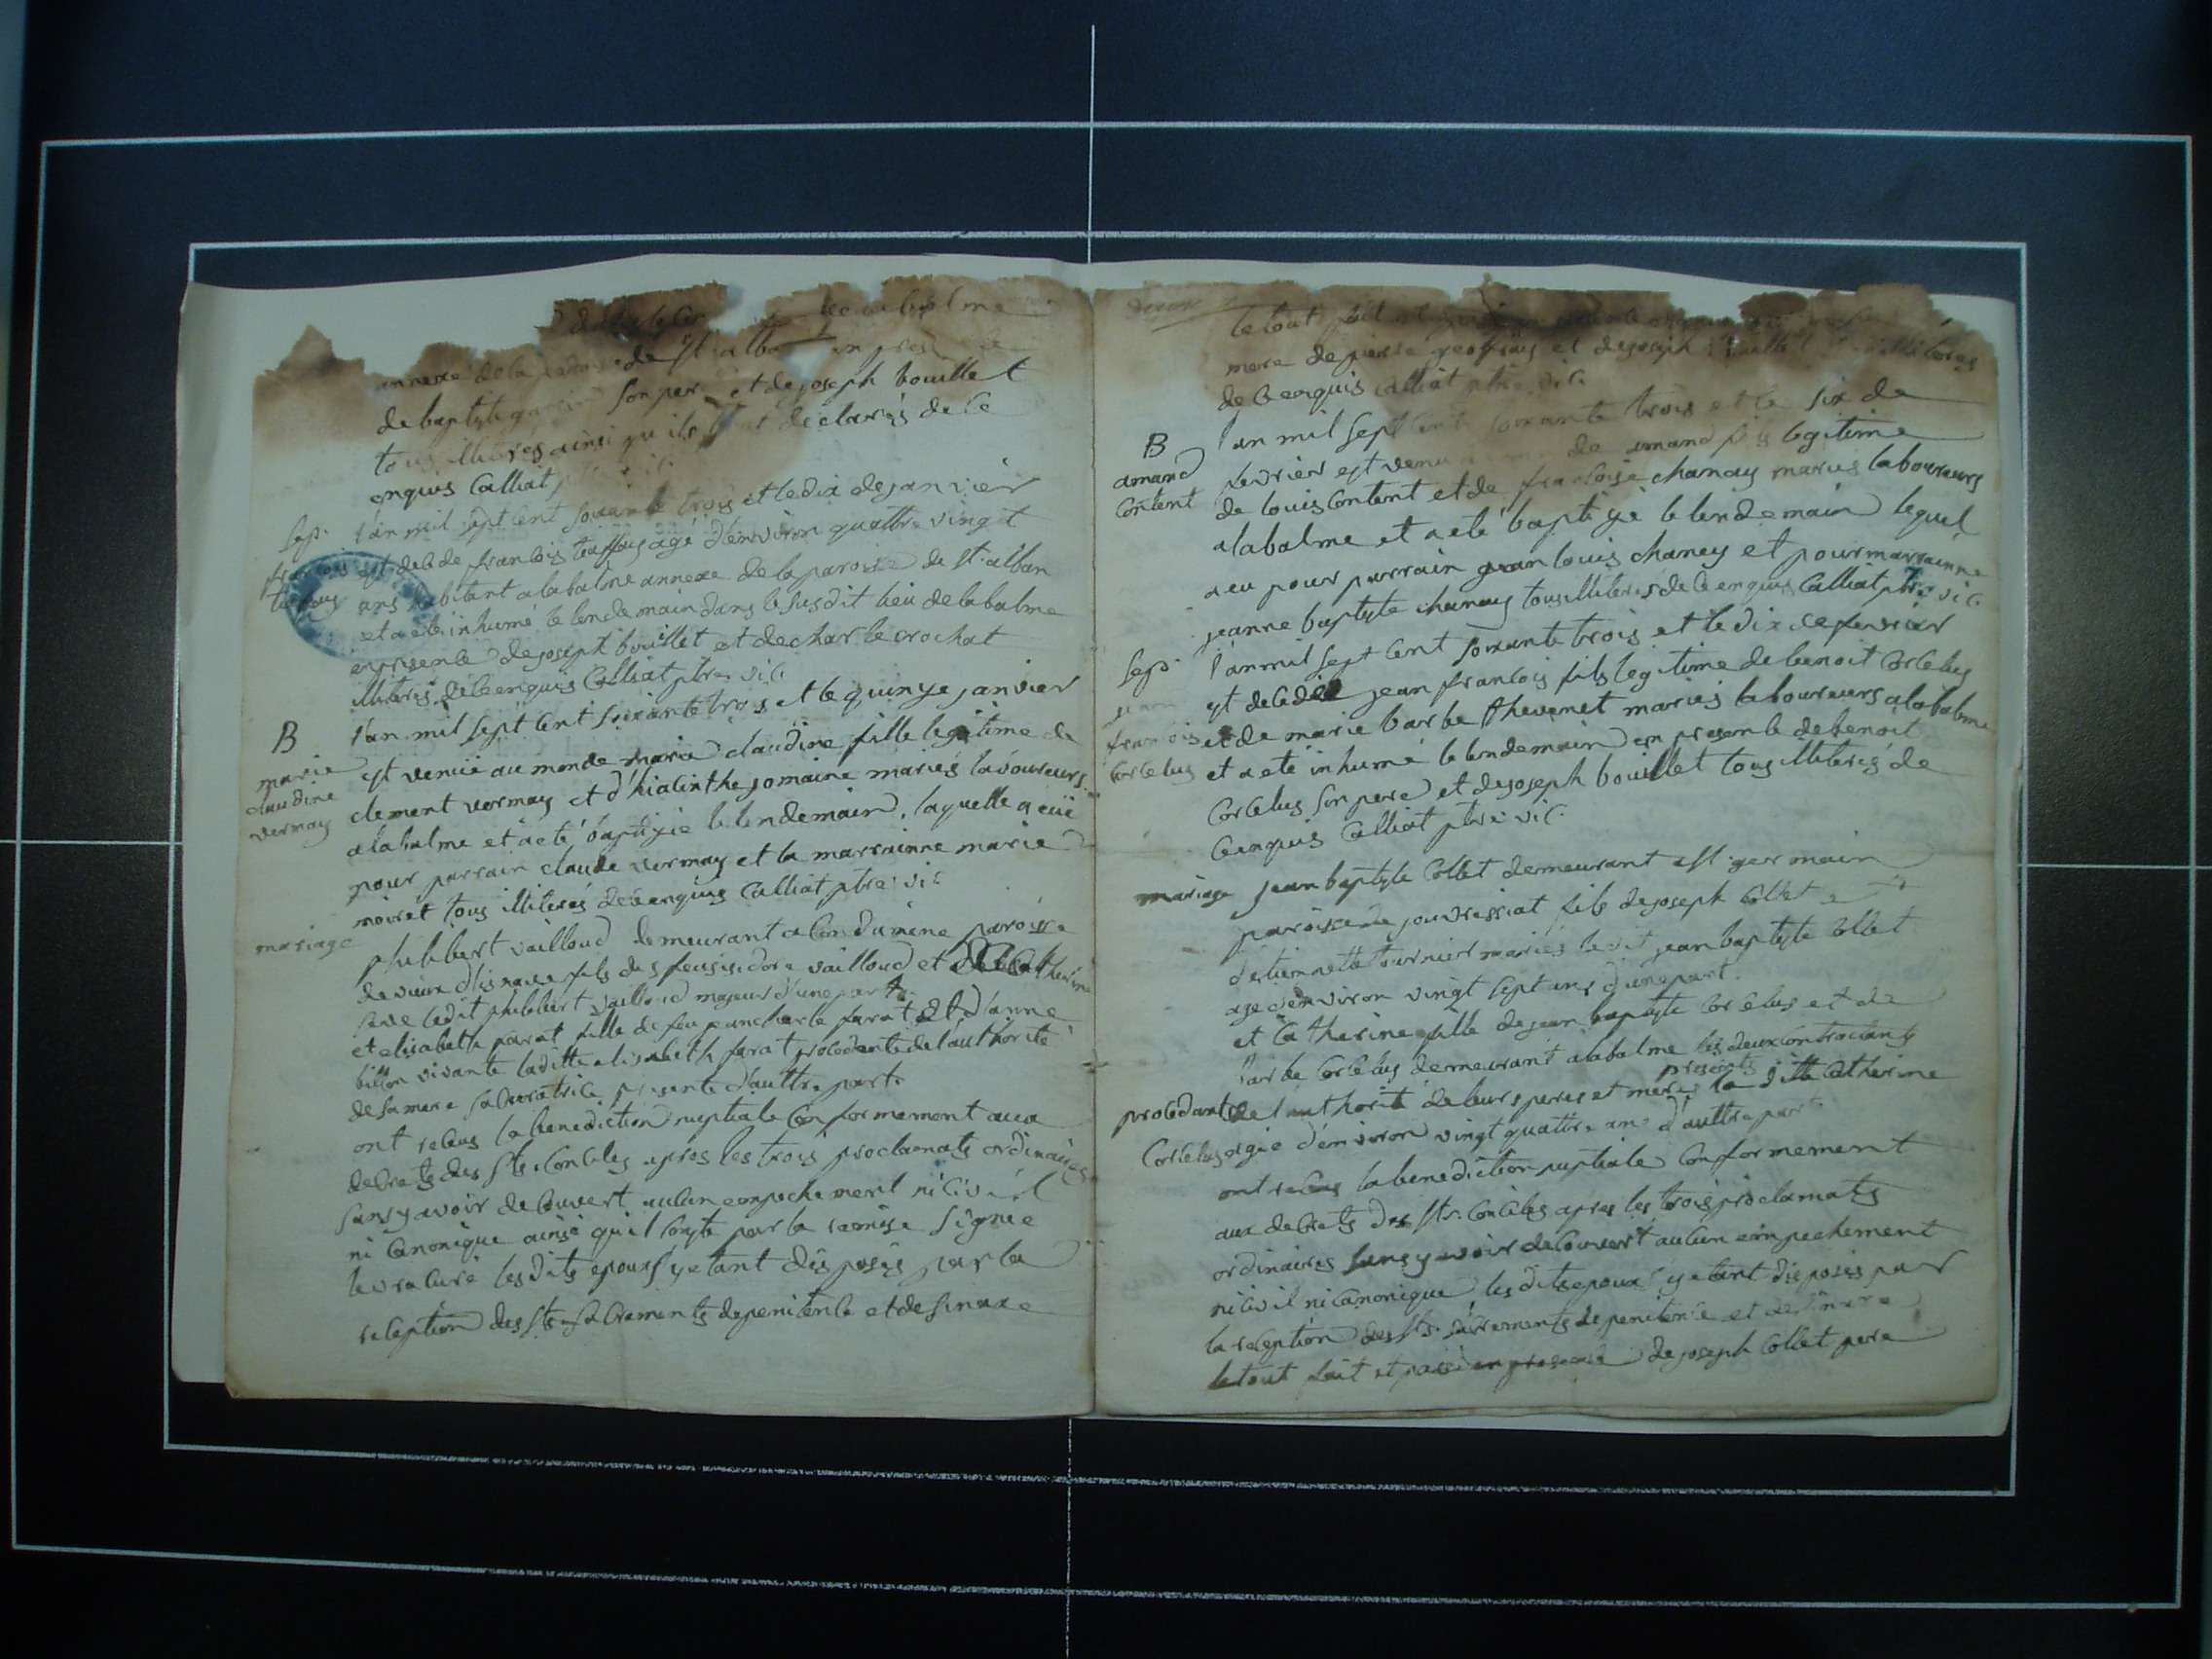 annexe de la de st alban en
de baptyste son pere et de joseph bouillet
tous illiteres ainsi qu ils declarés de ce
enquis Calliat
Sep. l'an mil sept cent soixante trois et le dix de janvier
françois est decede françois agé d'environ quattre vingt
ans habitant a la balme annexe de la paroise de st. alban
et a eté inhumé le lendemain dans le susdit lieu de la balme
en presence de joseph bouillet et de charle crochat
illiterés de ce enquis Calliat ptre vic.
B l'an mil sept cent soixante trois et le quinze janvier
marie est venüe au monde marie claudine fille legitime de
claudine clement vermay et d'hiacinthe jomaine mariés laboureurs
vermay a la balme et a eté baptizée le lendemain, laquelle a eüe
pour parrain claude vermay et la marrainne marie
moiret tous illiterés de ce enquis Calliat ptre vic
mariage philibert vailloud demeurant a Condamine paroisse
de vieux d'isnave fils des feus isidore vailloud et de Catherine
ledit philibert vailloud majeur d'une part
et elisabeth parat fille de feu jean charle parat et d'anne
billon vivante laditte elisabeth parat procedante de l'authorité
de sa mere sa curatrice presente d'auttre part.
ont recus la benediction nuptiale Conformement aux
decrets des Sts. Conciles apres les trois proclamats ordinaires
sans y avoir decouvert aucun empechement ni civil
ni Canonique ainsi qu'il Conste par la remise signée
levrat curé lesdits epoux s'y etant disposés par la
reception des Sts. Sacrements de penitence et de sinaxe
le tout fait et
mere de pierre geoffray et de joseph
de ce enquis Calliat ptre vic.
B l'an mil sept cent soixante trois et le six de
amand fevrier est venu de amand fils legitime
Content de louis Content et de françoise chanay mariés laboureurs
a la balme et a eté baptizé le lendemain lequel
a eu pour parrain jean louis chaney et pour marrainne
jeanne baptyste chanay tous illiterés de ce enquis Calliat ptre vic.
Sep. l'an mil sept cent soixante trois et le dix de fevrier
jean est decedé jean françois fils legitime de benoit Corcelus
françois et de marie barbe thevenet mariés laboureurs a la balme
Corcelus et a eté inhumé le lendemain en presence de benoit
Corcelus son pere et de joseph bouillet tous illiterés de
ce enquis Calliat ptre vic.
mariage jean baptyste Collet demeurant a st. germain
paroisse de jouvressiat fils de joseph Collet et
d'etiennette turnier mariés ledit jean baptyste Collet
age d'environ vingt sept ans d'une part.
et Catherine fille de jean baptyste Corcelus et de
barbe Corcelus demeurant a la balme les deux contractants
presents
procedants de l'authorité de leurs peres et meres la ditte Catherine
Corcelus agée d'environ vingt quattre ans d'auttre part
ont recus la benediction nuptiale Conformement
aux decrets des Sts. Conciles apres les trois proclamats
ordinaires sans y avoir decouvert aucun empechement
ni civil ni Canonique lesdits epoux s'y etant disposés par
la reception des Sts. sacrements de penitence et de sinaxe
le tout fait et passé en presence de joseph Collet pere